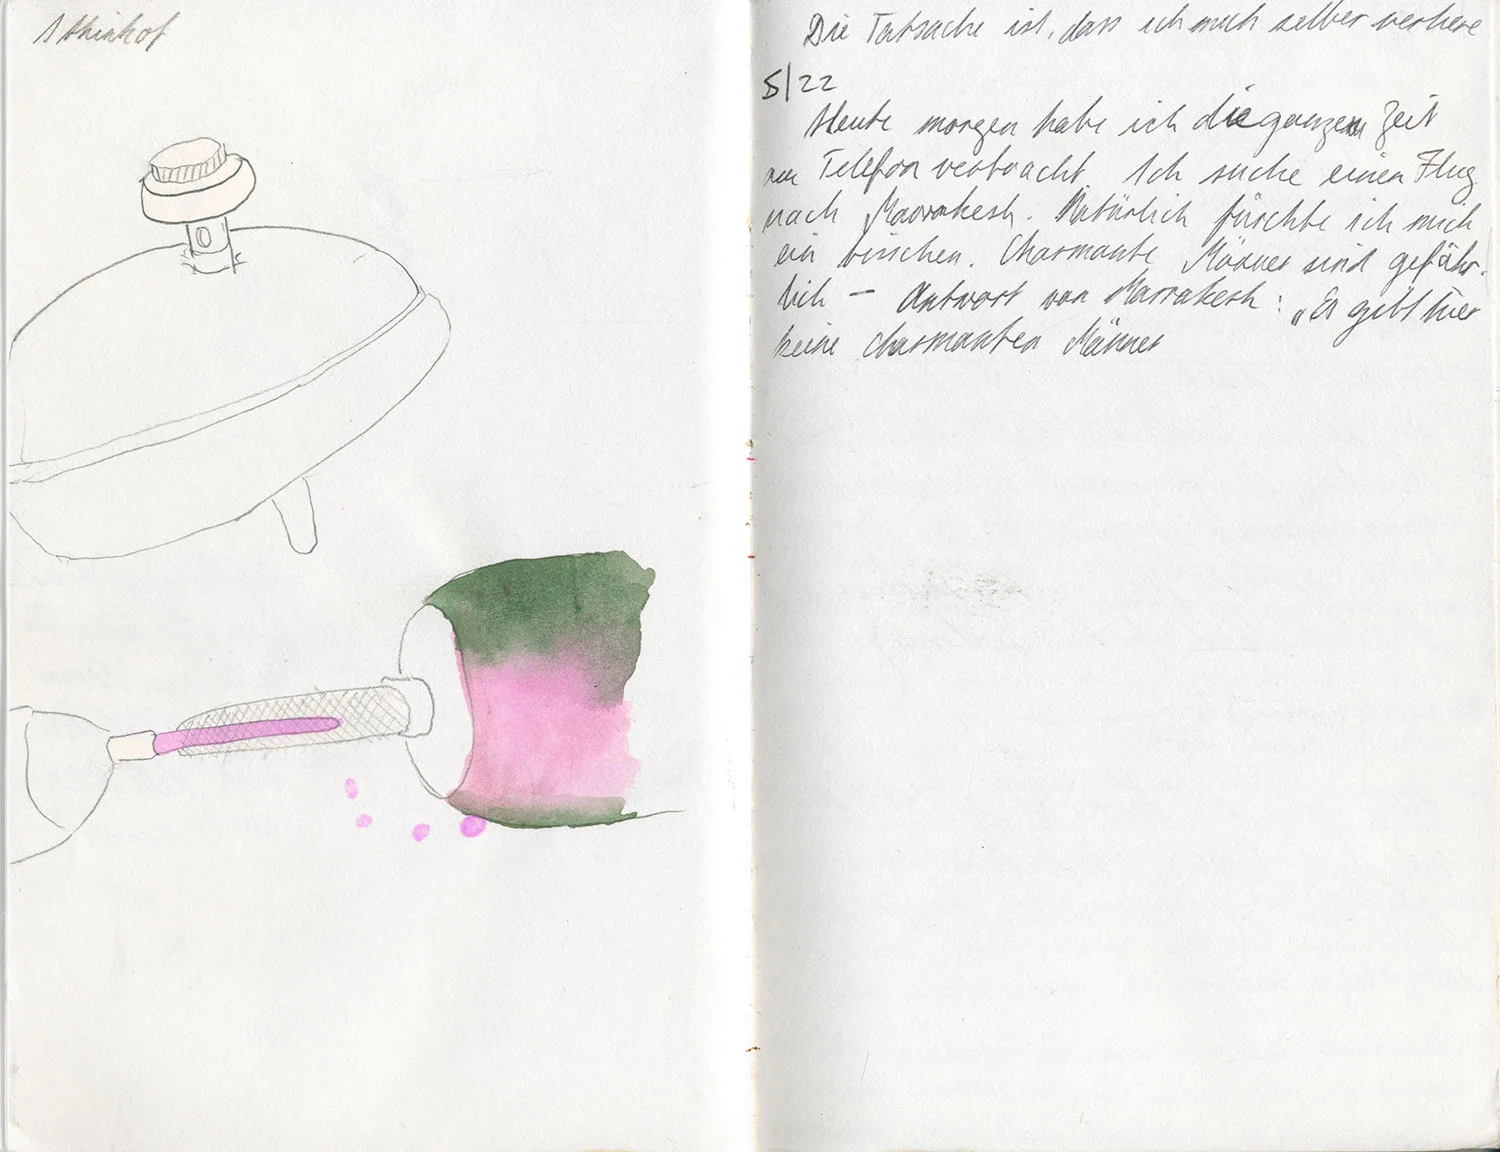 Die Tatsache ist, dass ich mich selber verliere
5/22
Heute morgen habe ich die ganzen Zeit
am Telefon verbracht. Ich suche einen Flug
nach Marrakesh. Natürlich fürchte ich mich
ein bisschen. Charmante Männer sind gefähr-
lich – Antwort von Marrakesh: „Es gibt hier
keine charmanten Männer